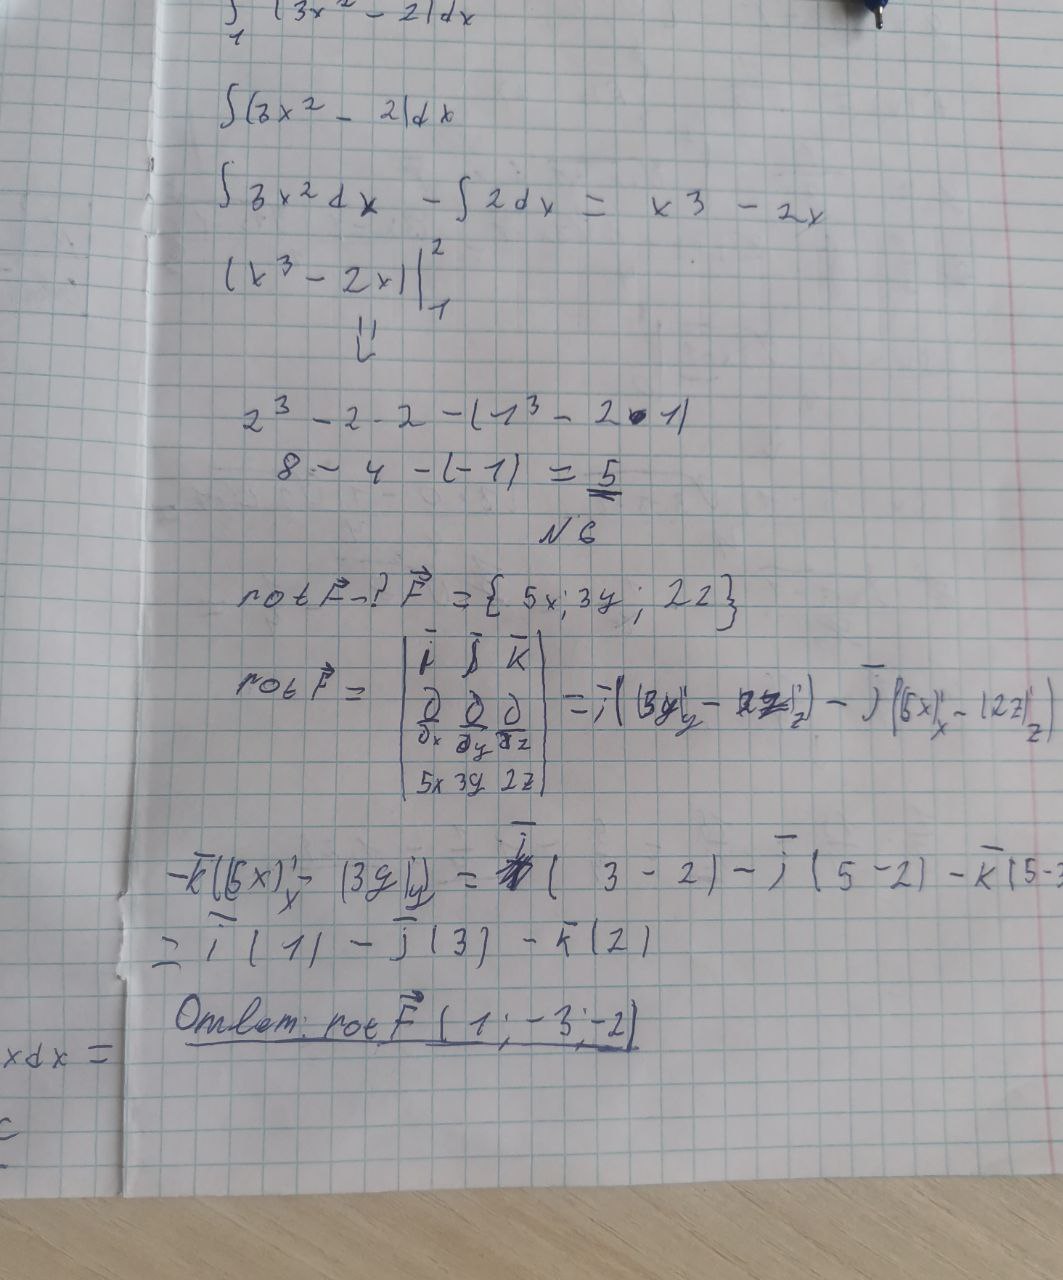 ∫₁ (3x² - 2)dx
∫(3x² - 2)dx
∫3x²dx - ∫2dx = x³ - 2x
(x³ - 2x)|₁²
⇓
2³ - 2·2 - (1³ - 2·1)
8 - 4 - (-1) = 5
N6
rot F⃗ -? F⃗ = {5x; 3y; 2z}
rot F⃗ = | i̅ j̅ k̅ |
| ∂/∂x ∂/∂y ∂/∂z |
| 5x 3y 2z |
= i̅((3y)'y - (2z)'z) - j̅((5x)'x - (2z)'z)
-k̅((5x)'x - (3y)'y) = i̅(3 - 2) - j̅(5 - 2) - k̅(5-3
= i̅(1) - j̅(3) - k̅(2)
Ответ: rot F⃗ (1; -3; -2)
xdx =